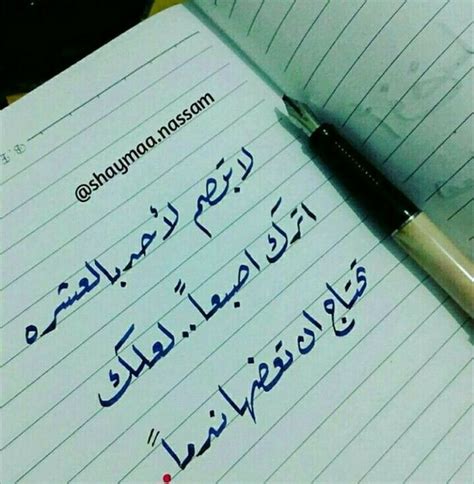 @shaymaa.nassam
لا تبصم لأحد بالعشره
اترك اصبعاً .. لعلك
تحتاج ان تعضها ندماً